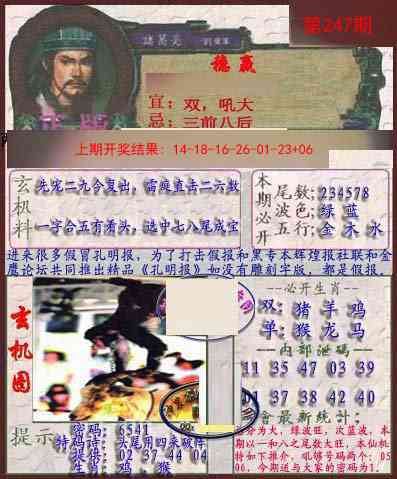 第247期
諸葛亮
稳赢
宜：双，吼大
忌：三前八后
上期开奖结果：14-18-16-26-01-23+06
玄机料
先宠二九今复出，雷零直击二六数
一字合五有看头，选中七八尾成宝
本期必开
尾数：234578
波色：绿 蓝
五行：金 木 水
进来很多假冒孔明报，为了打击假报和黑专本辉煌报社联和金
鹰论坛共同推出精品《孔明报》如没有雕刻字版，都是假报。
玄机图
--必开生肖--
双：猪 羊 鸡
单：猴 龙 马
--内部泄码--
11 35 47 03 39
01 37 38 42 40
會最新統计：
分为大，绿波旺，次蓝波，本
期以一和八之尾数大旺，本仙机
特如下推介，吼够号码两个：05
06，今期适与大家的密码为1。
提示
密码：6541
特码诗：头尾用四来破件
提供：02 37 44 04
生肖：鸡，猴